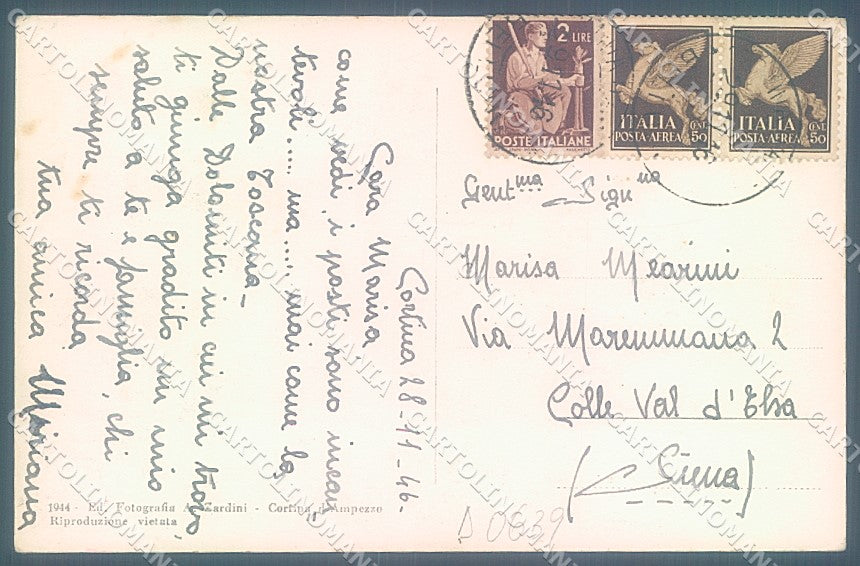 Cortina 28-11-46-
Cara Marisa
come vedi i posti sono incan
tevoli .... ma .... mai come la
nostra Toscana-
Dalle Dolomiti in cui mi trovo,
ti giunga gradito un mio
saluto a te e famiglia, chi
sempre ti ricorda
tua amica Miriana
1944 - Ed. Fotografia A. Zardini - Cortina d'Ampezzo
Riproduzione vietata
2 LIRE
POSTE ITALIANE
ITALIA
POSTA-AEREA
CENT.
50
ITALIA
POSTA-AEREA
CENT.
50
Gent ma Sign na
Marisa Mearini
Via Maremmana 2
Colle Val d'Elsa
(Siena)
D 0639
CARTOLINOMANIA